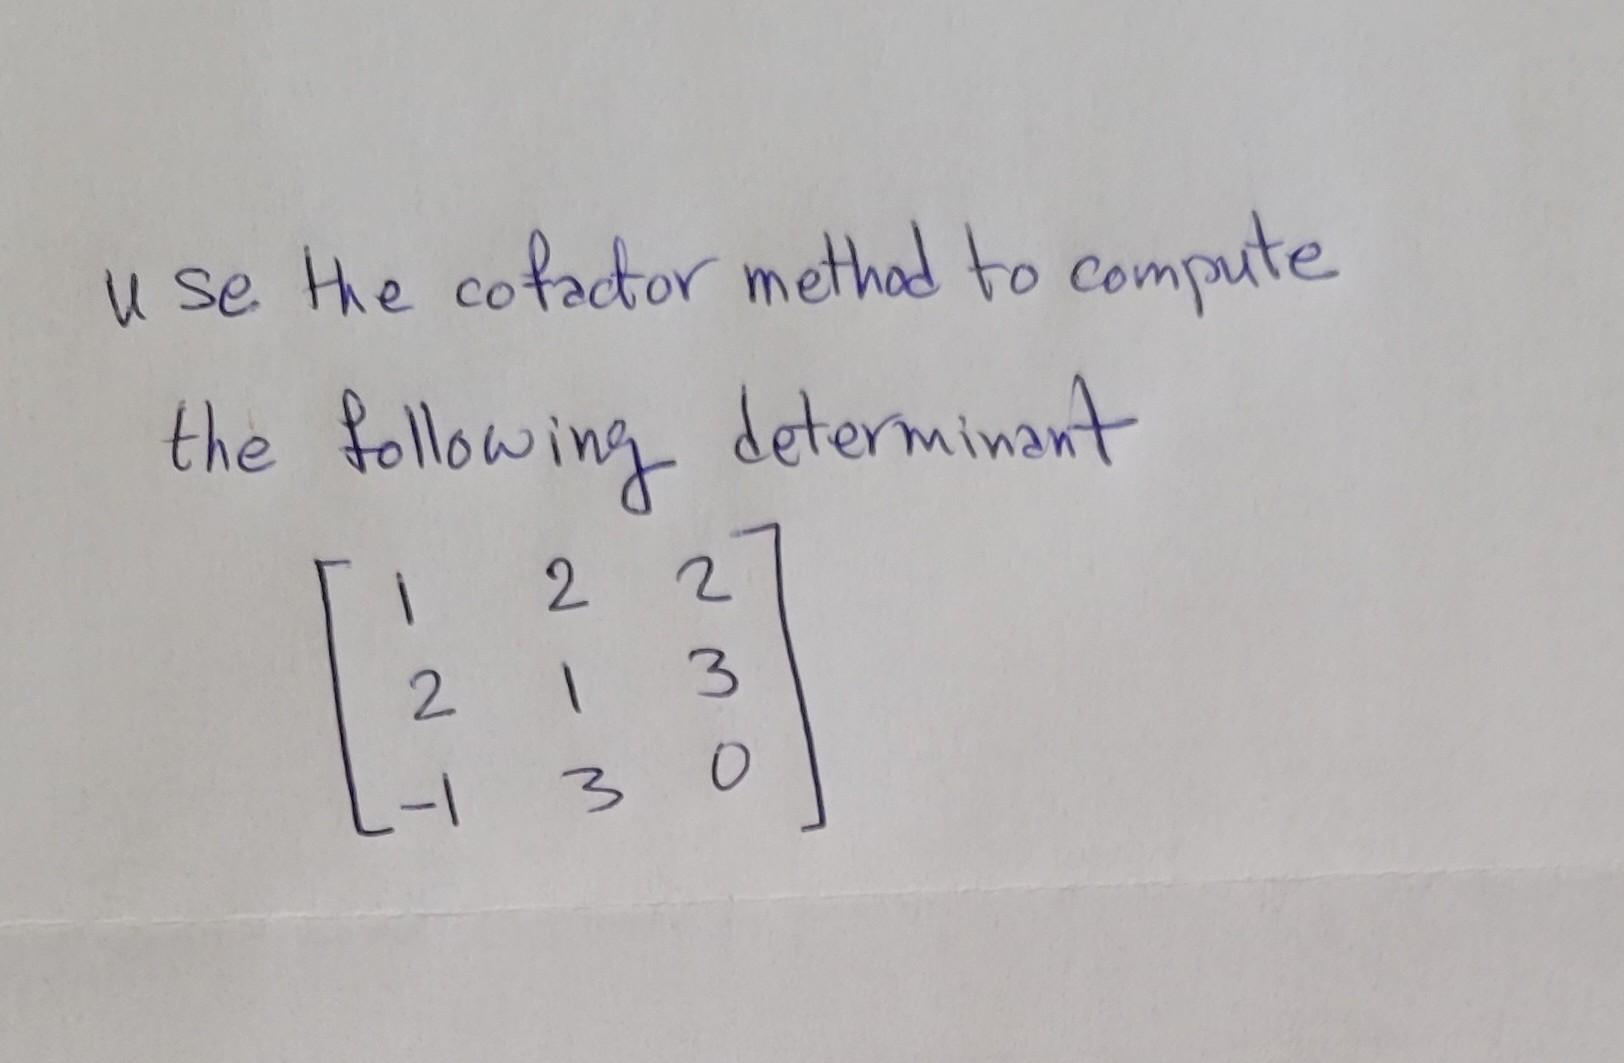 use the cofactor method to compute
the following determinant
1 2 2
2 1 3
-1 3 0